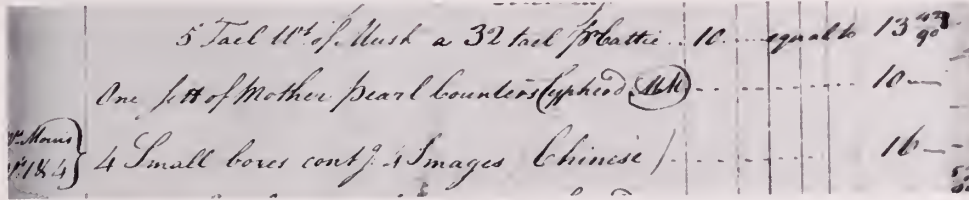 5 Tael Wt. of Musk a 32 tael pr Cattie .. 10 .... equal to 13 43/90
One sett of Mother pearl Counters (Cypherd MM) ........ 10 —
Morris 4 Small boxes contg. 4 Images Chinese / ........ 16 —